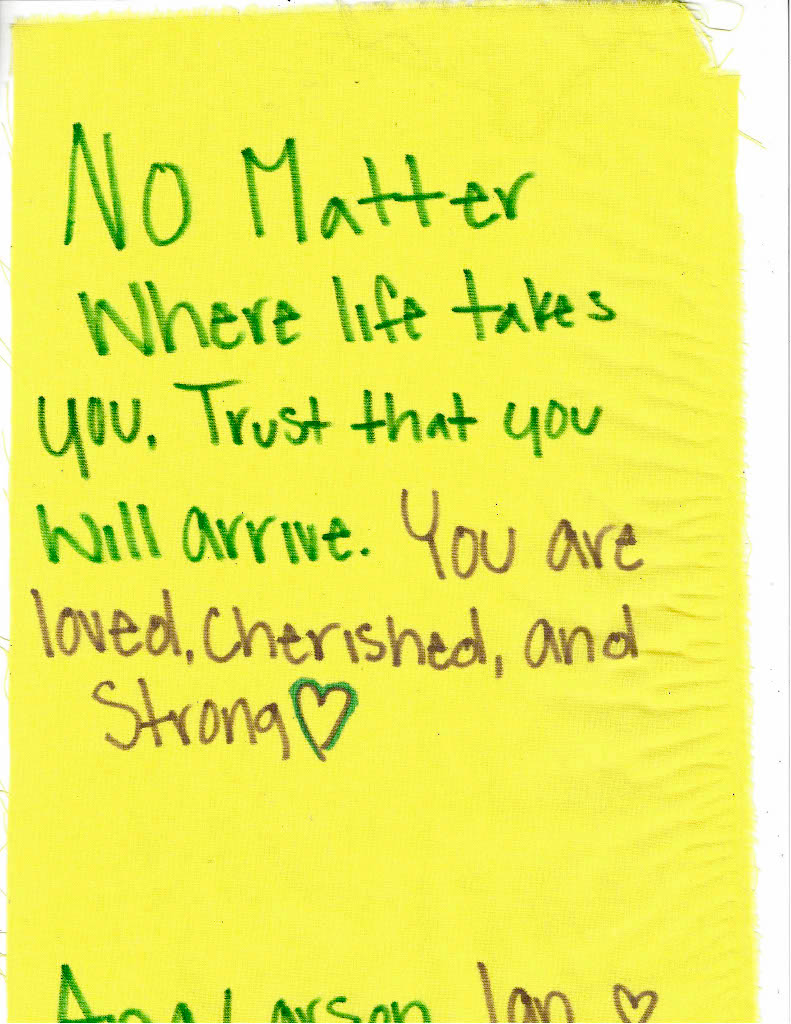 No Matter
Where life takes
you. Trust that you
will arrive. You are
loved, cherished, and
Strong♡
Ana Larson Ian ♡